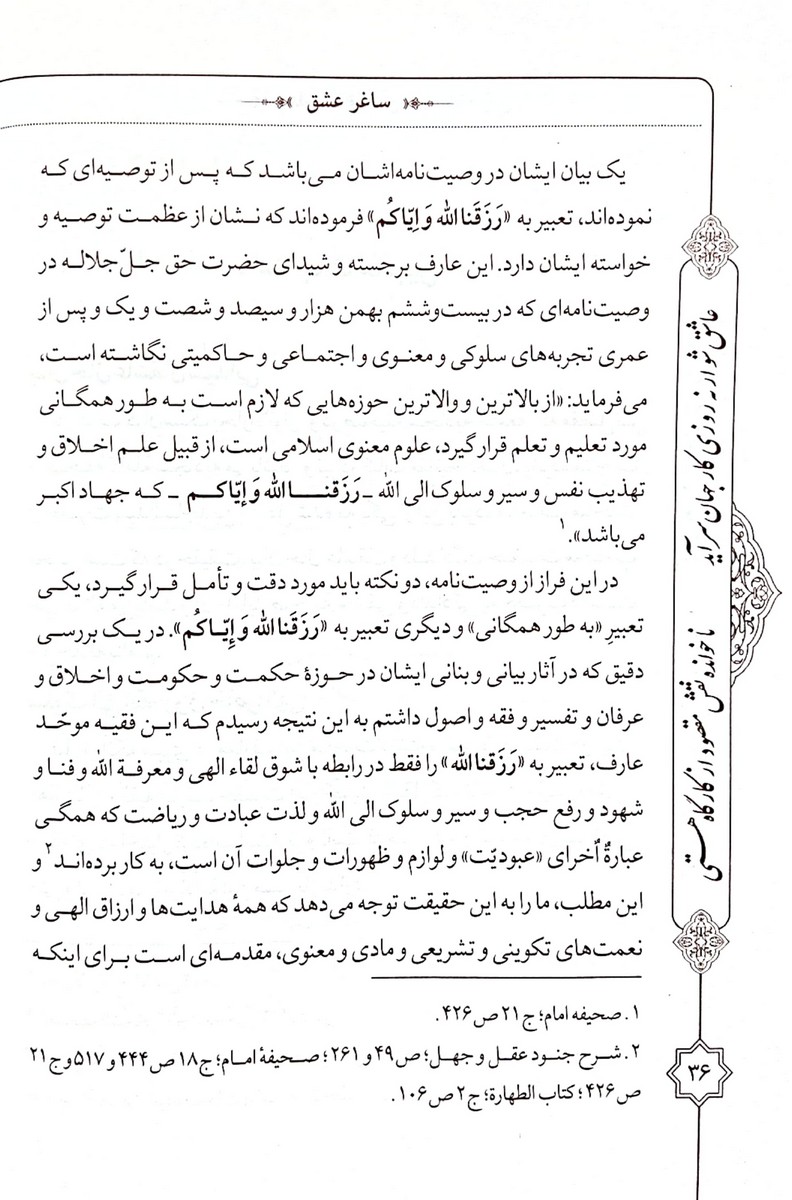 ساغر عشق
یک بیان ایشان در وصیت‌نامه‌اشان می‌باشد که پس از توصیه‌ای که
نموده‌اند، تعبیر به «رَزَقَنا الله وَ اِیّاکُم» فرموده‌اند که نشان از عظمت توصیه و
خواسته ایشان دارد. این عارف برجسته و شیدای حضرت حق جلّ جلاله در
وصیت‌نامه‌ای که در بیست‌وششم بهمن هزار و سیصد و شصت و یک و پس از
عمری تجربه‌های سلوکی و معنوی و اجتماعی و حاکمیتی نگاشته است،
می‌فرماید: «از بالاترین و والاترین حوزه‌هایی که لازم است به طور همگانی
مورد تعلیم و تعلم قرار گیرد، علوم معنوی اسلامی است، از قبیل علم اخلاق و
تهذیب نفس و سیر و سلوک الی الله ـ رَزَقنا الله وَ إیّاکم ـ که جهاد اکبر
می‌باشد».۱
در این فراز از وصیت‌نامه، دو نکته باید مورد دقت و تأمل قرار گیرد، یکی
تعبیرِ «به طور همگانی» و دیگری تعبیر به «رَزَقَنا الله وَ إِیّاکُم». در یک بررسی
دقیق که در آثار بیانی و بنانی ایشان در حوزهٔ حکمت و حکومت و اخلاق و
عرفان و تفسیر و فقه و اصول داشتم به این نتیجه رسیدم که این فقیه موحّد
عارف، تعبیر به «رَزَقنا الله» را فقط در رابطه با شوق لقاء الهی و معرفة الله و فنا و
شهود و رفع حجب و سیر و سلوک الی الله و لذت عبادت و ریاضت که همگی
عبارةٌ اُخرای «عبودیّت» و لوازم و ظهورات و جلوات آن است، به کار برده‌اند۲ و
این مطلب، ما را به این حقیقت توجه می‌دهد که همهٔ هدایت‌ها و ارزاق الهی و
نعمت‌های تکوینی و تشریعی و مادی و معنوی، مقدمه‌ای است برای اینکه
۱. صحیفه امام؛ ج ۲۱ ص ۴۲۶.
۲. شرح جنود عقل و جهل؛ ص ۴۹ و ۲۶۱؛ صحیفهٔ امام؛ ج ۱۸ ص ۴۴۴ و ۵۱۷ و ج ۲۱
ص ۴۲۶؛ کتاب الطهارة؛ ج ۲ ص ۱۰۶.
عاشق شو ار نه روزی کار جهان سر آید
ناخوانده نقش مقصود از کارگاه هستی
۳۶